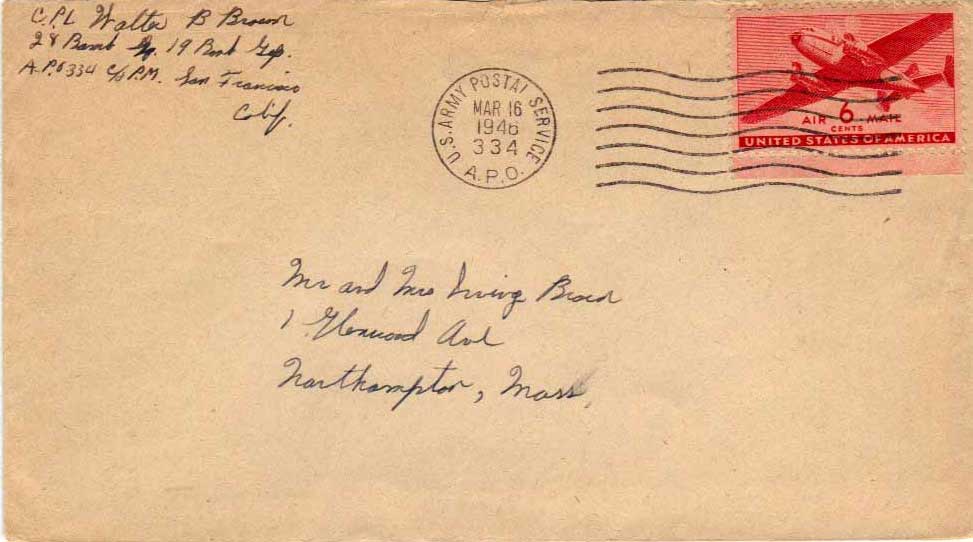 CPL Walter B Brown
28 Bomb Sq. 19 Bomb Gp.
A.P.O 334 c/o P.M. San Francisco
Calif.
U.S. ARMY POSTAL SERVICE
MAR 16
1946
334
A.P.O.
AIR 6 MAIL
CENTS
UNITED STATES OF AMERICA
Mr and Mrs Irving Brown
1 Glenwood Ave
Northampton, Mass.